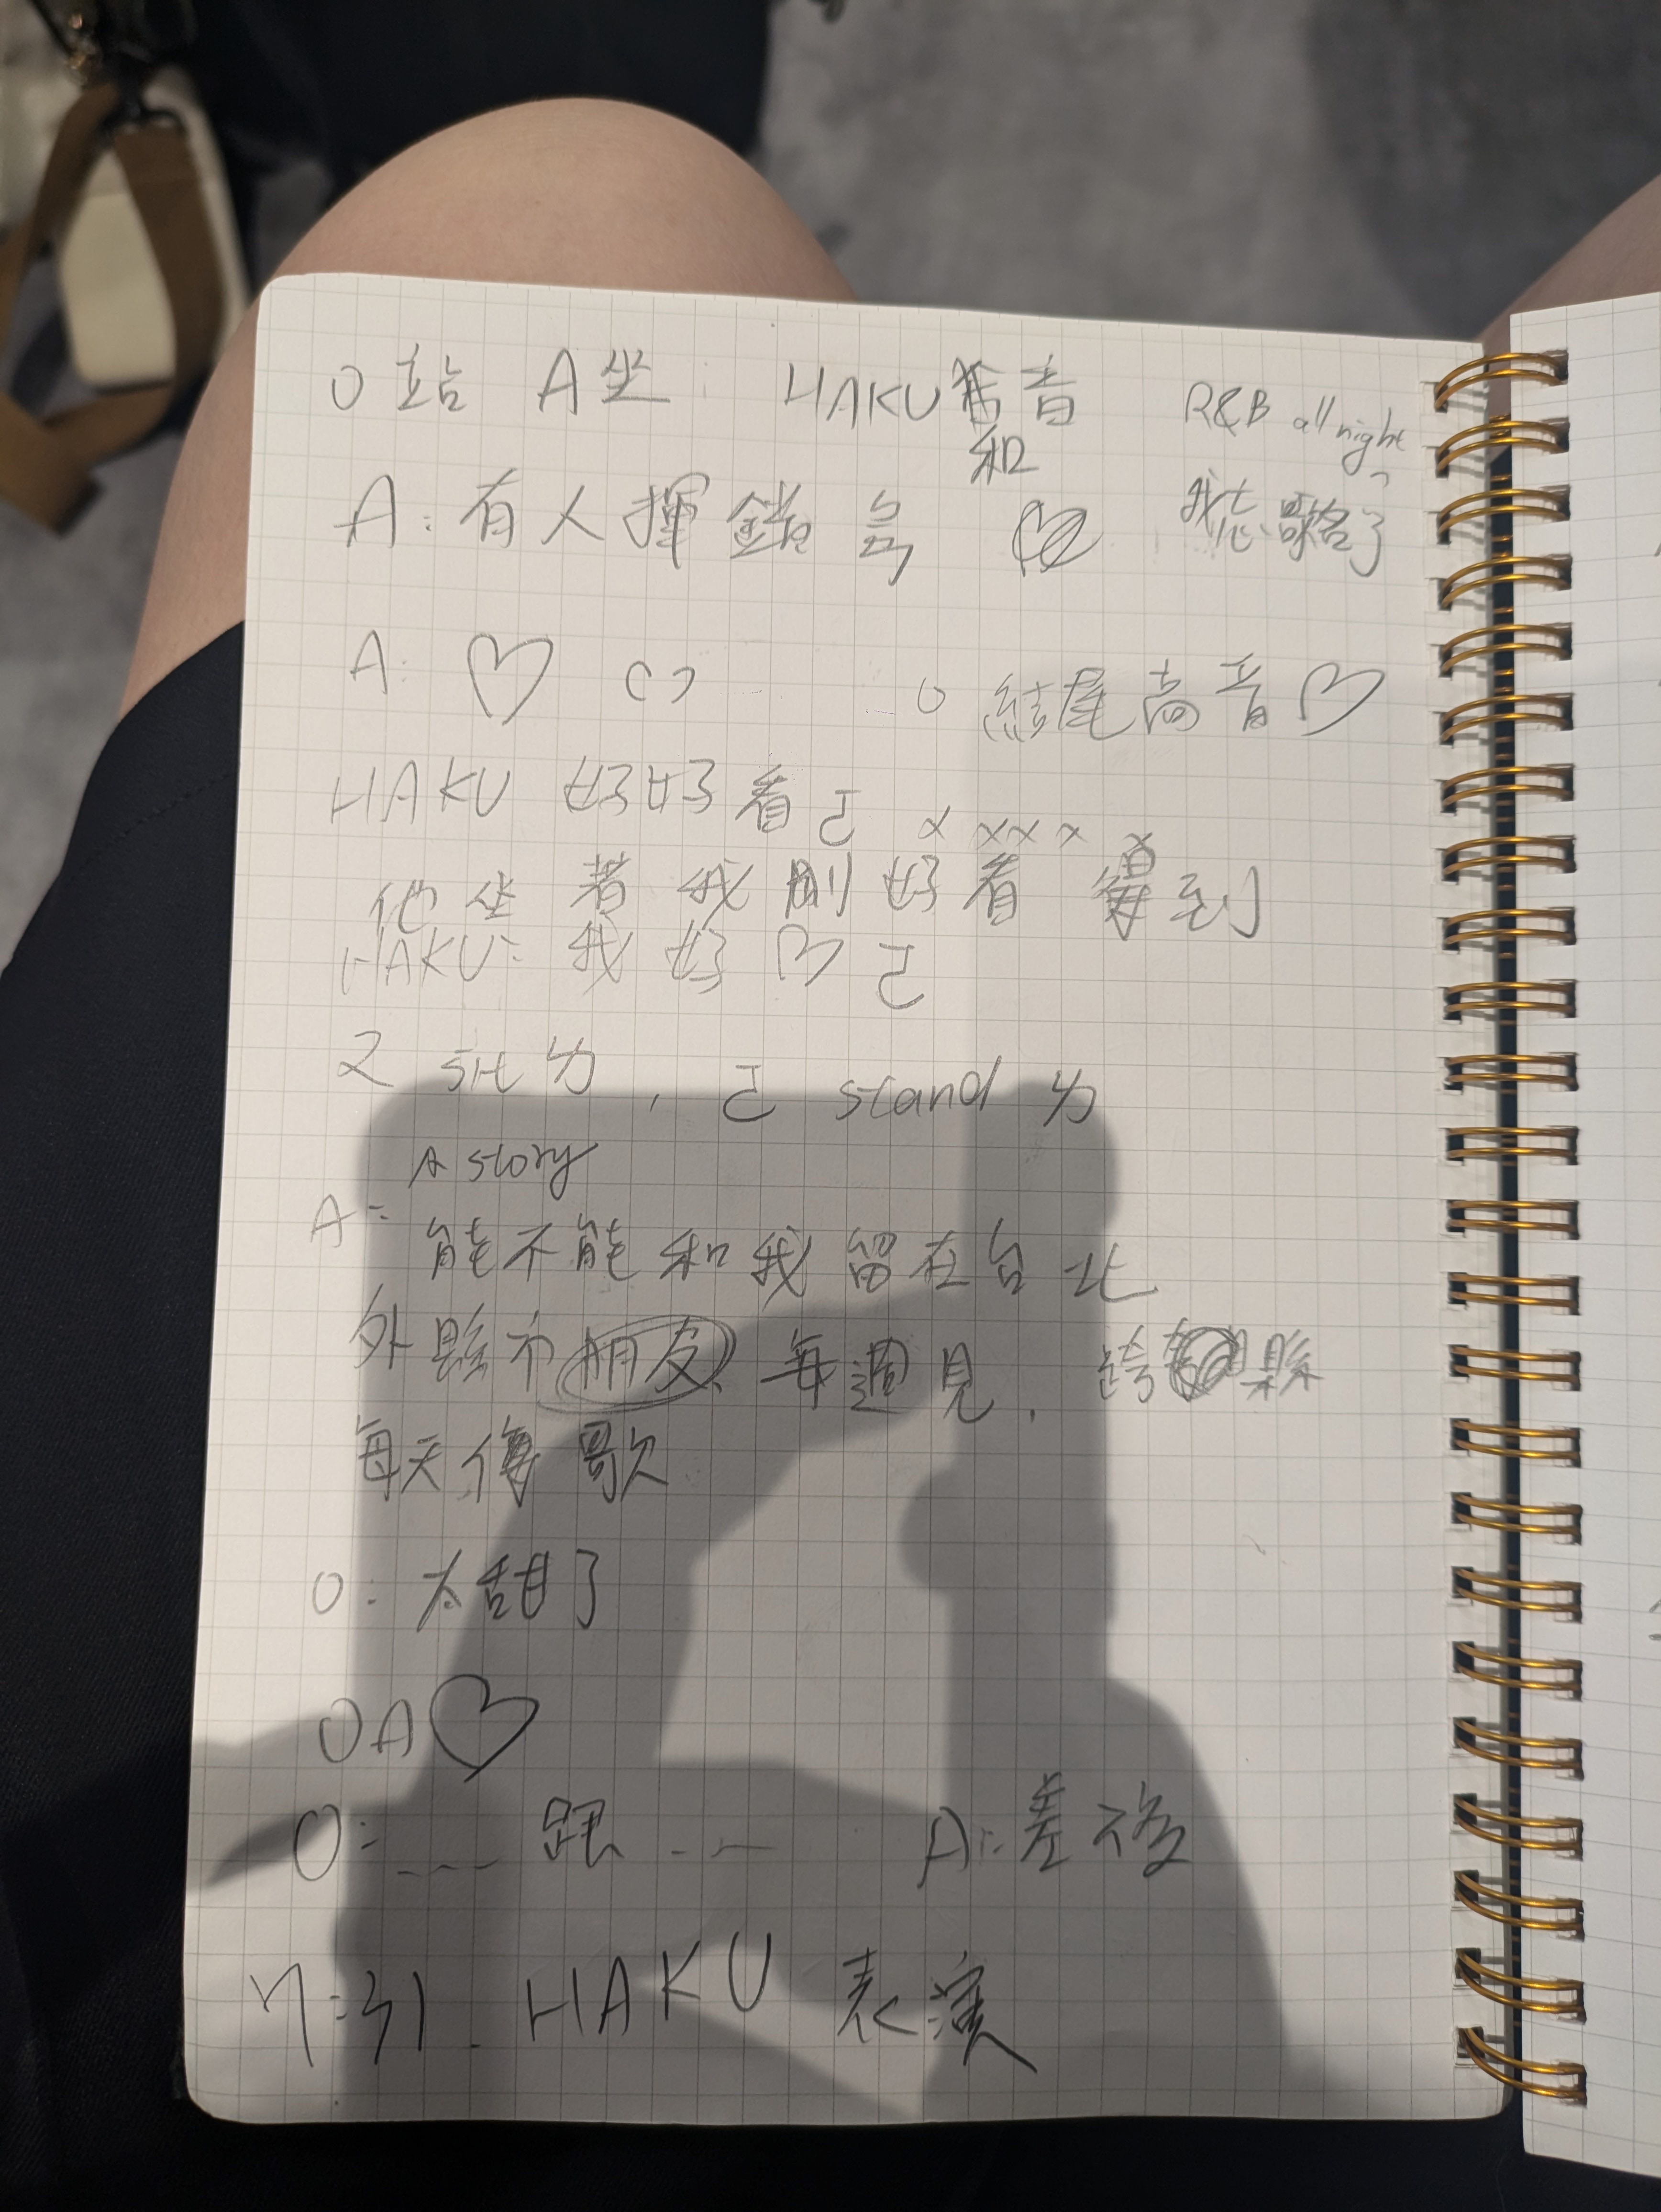 O站 A坐 HAKU 和音 R&B all night
A: 有人揮錯 我忘歌名了
A: ♡ O 結尾高音♡
HAKU 好好看己 x x x x x
他坐著我剛好看得到
HAKU: 我好♡己
ㄡ sit ㄌ, 己 stand ㄌ
A story
A: 能不能和我留在台北
外縣市朋友 每週見, 跨縣
每天傳歌
O: 太甜了
OA♡
O: ___ 跟 ___ A: 差不多
7:31 HAKU 表演